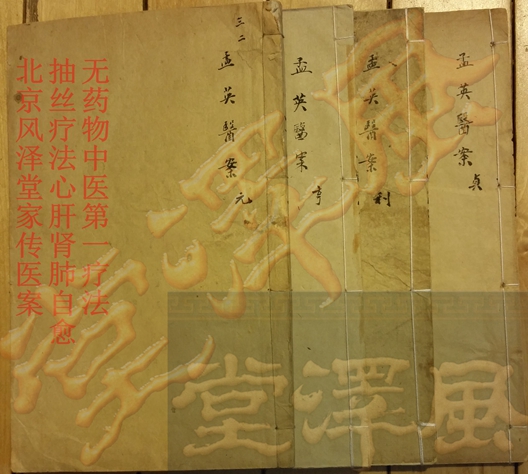 无药物中医第一疗法
抽丝疗法心肝肾肺自愈
北京风泽堂家传医案
三二
孟英醫案 元
孟英醫案 亨
孟英醫案 利
孟英醫案 貞
風澤堂